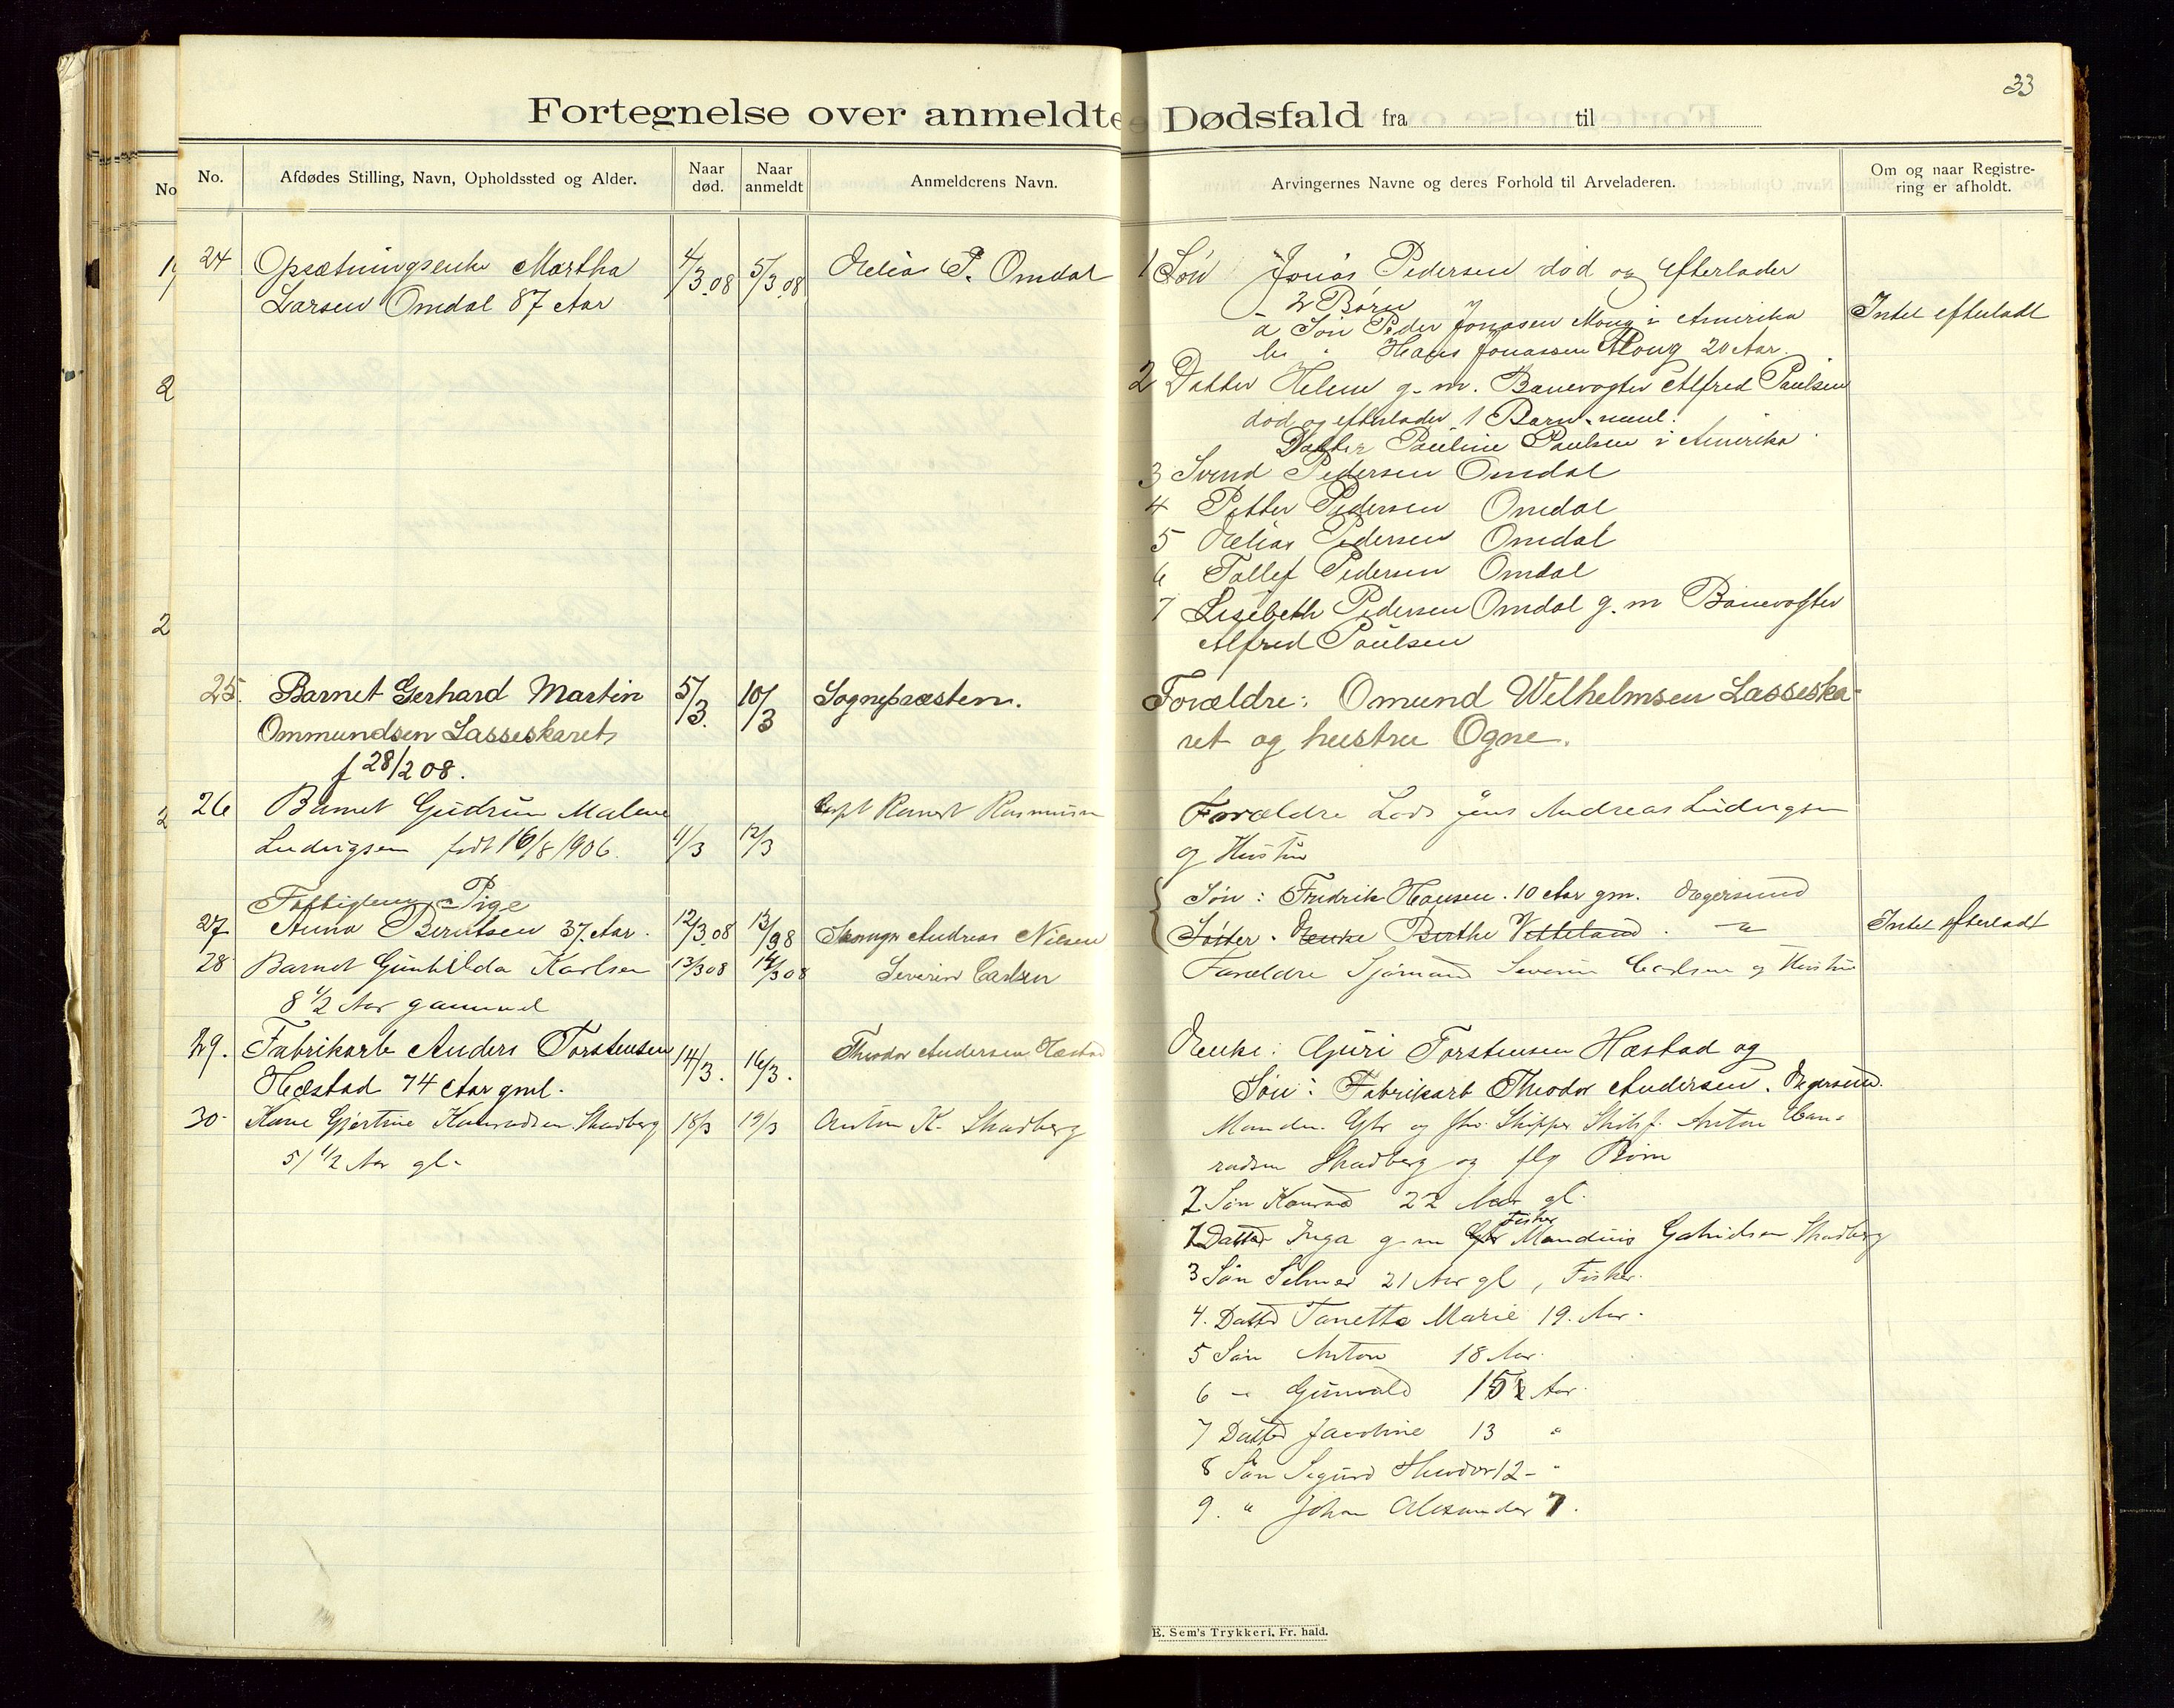 33
Fortegnelse over anmeldte Dødsfald fra til
No
No.
Afdødes Stilling, Navn, Opholdssted og Alder.
Naar død.
Naar anmeldt
Anmelderens Navn.
Arvingernes Navne og deres Forhold til Arveladeren.
Om og naar Registrering er afholdt.
24 Opsætningsenke Martha 4/3.08 5/3.08 Aelias P. Omdal
Larsen Omdal 87 Aar
1 Søn Jonas Pedersen død og efterlader
2 Børn
a Søn Peder Jonasen Moug i Amerika
b " Hans Jonassen Moug 20 Aar.
Intet efterladt
2 Datter Helene g. m. Banevogter Alfred Paulsen
død og efterlader 1 Barn. neml.
Datter Pauline Paulsen i Amerika.
3 Svend Pedersen Omdal
4 Petter Pedersen Omdal
5 Aelias Pedersen Omdal
6 Tollef Pedersen Omdal
7 Lisebeth Pedersen Omdal g. m Banevogter
Alfred Paulsen
25. Barnet Gerhard Martin 5/3. 10/3 Sognepræsten.
Ommundsen Lasseskaret
f 28/2 08.
Forældre: Omund Wilhelmsen Lasseska-
ret og hustru Ogne.
26 Barnet Gudrun Malene Rasmussen
Ludvigsen født 16/8 1906. 11/3 12/3
Forældre Lods Jens Andreas Ludvigsen
og Hustru
Pige
27 Anna Berntsen 37. Aar. 12/3.08 13/3 98 Andreas Nilsen
Søn: Fredrik Hansen. 10 Aar gm. Egersund
Søster. Enke Berthe Vetteland. - " -
Intet efterladt
28 Barnet Gunhilda Karlsen 13/3 08 14/3 08 Severin Carlsen
8 1/2 Aar gammel
Forældre Sjømand Severin Carlsen og Hustru
29. Fabrikarb Anders Torstensen 14/3. 16/3. Theodor Andersen Hæstad
Hæstad 74 Aar gml.
Enke: Guri Torstensen Hæstad og
Søn: Fabrikarb Theodor Andersen. Egersund.
30 Kone Gjertine Konradsen Skadberg 18/3 19/3 Anton K. Skadberg
51 1/2 Aar gl.
Manden. Gbr og Skipper Anton Con-
radsen Skadberg og flg Børn
2 Søn Konrad 22 Aar gl.
Fisker
1 Datter Inga g m Gbr Mandius Gabrielsen Skadberg
3 Søn Selmer 21 Aar gl, Fisker.
4. Datter Tanetta Marie 19. Aar.
5 Søn Anton 18 Aar.
6 - Gunvald 15 Aar.
7 Datter Jacobine 13 "
8 Søn Sigurd Theodor 12 - "
9. " Johan Alexander 7.
E. Sem's Trykkeri, Fr. hald.